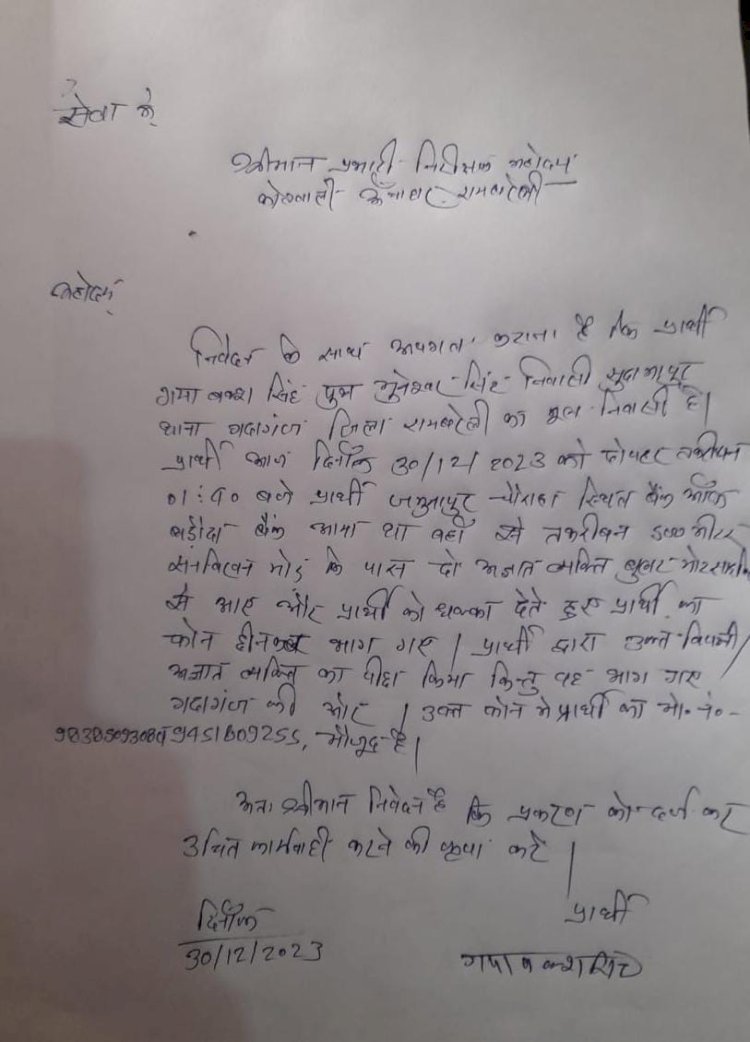 सेवा में,
श्रीमान प्रभारी निरीक्षक महोदय
कोतवाली ऊँचाहार रायबरेली
महोदय,
निवेदन के साथ अवगत कराना है कि प्रार्थी
गया बक्श सिंह पुत्र मुनेश्वर सिंह निवासी सुदामापुर
थाना गदागंज जिला रायबरेली का मूल निवासी है।
प्रार्थी आज दिनाँक 30/12/2023 को दोपहर तकरीबन
01:40 बजे प्रार्थी जमुनापुर चौराहा स्थित बैंक ऑफ
बड़ौदा बैंक आया था वहाँ से तकरीबन 500 मीटर
मोड़ के पास दो अज्ञात व्यक्ति बुलट मोटरसाइकिल
से आए और प्रार्थी को धक्का देते हुए प्रार्थी का
फोन छीनकर भाग गए। प्रार्थी द्वारा उक्त विपक्षी/
अज्ञात व्यक्ति का पीछा किया किन्तु वह भाग गए
गदागंज की ओर। उक्त फोन में प्रार्थी का मो० नं०-
व 9451609255, मौजूद है।
अतः श्रीमान निवेदन है कि प्रकरण को दर्ज कर
उचित कार्यवाही करने की कृपा करें।
दिनाँक
प्रार्थी
30/12/2023
गया बक्श सिंह